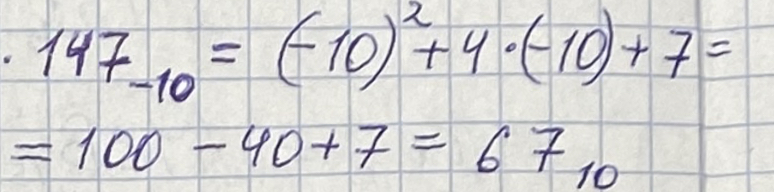 . 147₋₁₀ = (-10)² + 4 · (-10) + 7 =
= 100 - 40 + 7 = 67₁₀